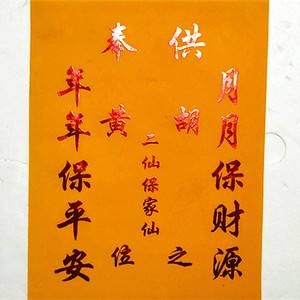 供奉
月月保财源
胡黄
二仙保家仙
之位
年年保平安